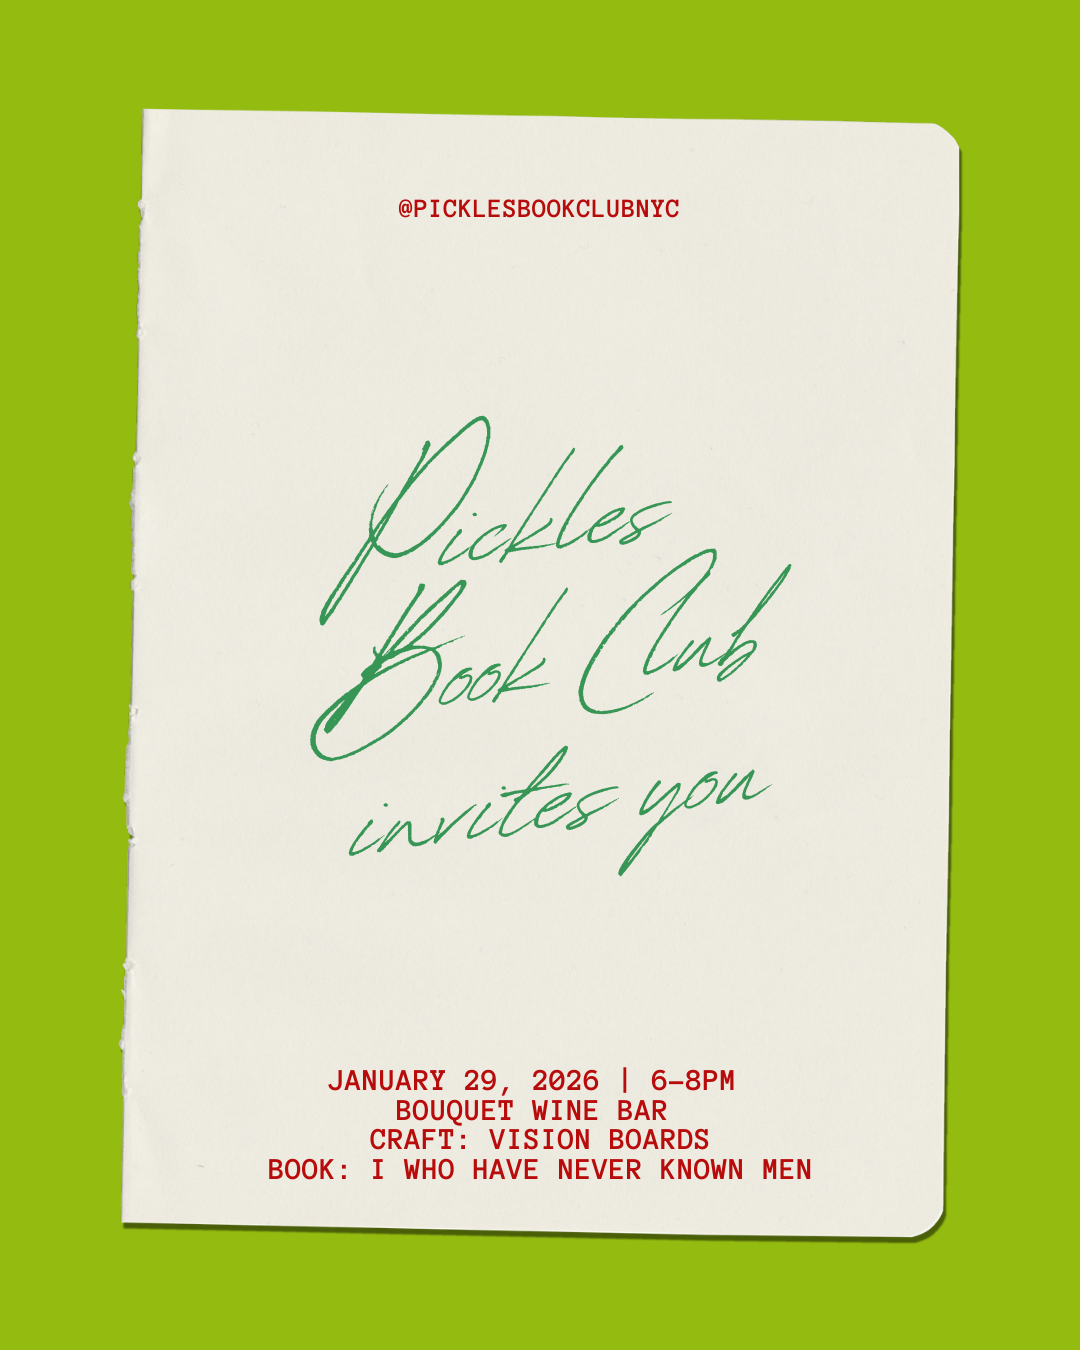 @PICKLESBOOKCLUBNYC
Pickles
Book Club
invites you
JANUARY 29, 2026 | 6–8PM
BOUQUET WINE BAR
CRAFT: VISION BOARDS
BOOK: I WHO HAVE NEVER KNOWN MEN